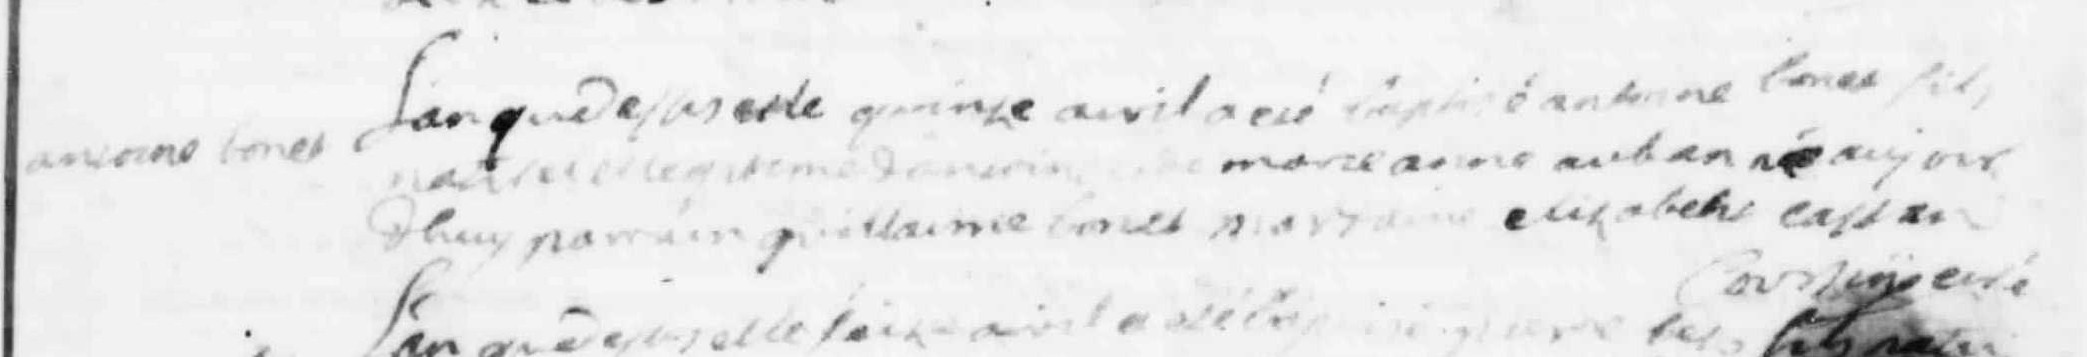 antoine bonet
L'an que dessus et le quinze avril a esté baptisé antoine bonet fils
naturel et legiteme d'antoine et de marie anne auban né aujour
d'huy parrain guillaume bonet marraine elizabeht castan
curé
L'an que dessus et le seize avril a esté baptisé pierre fils natu